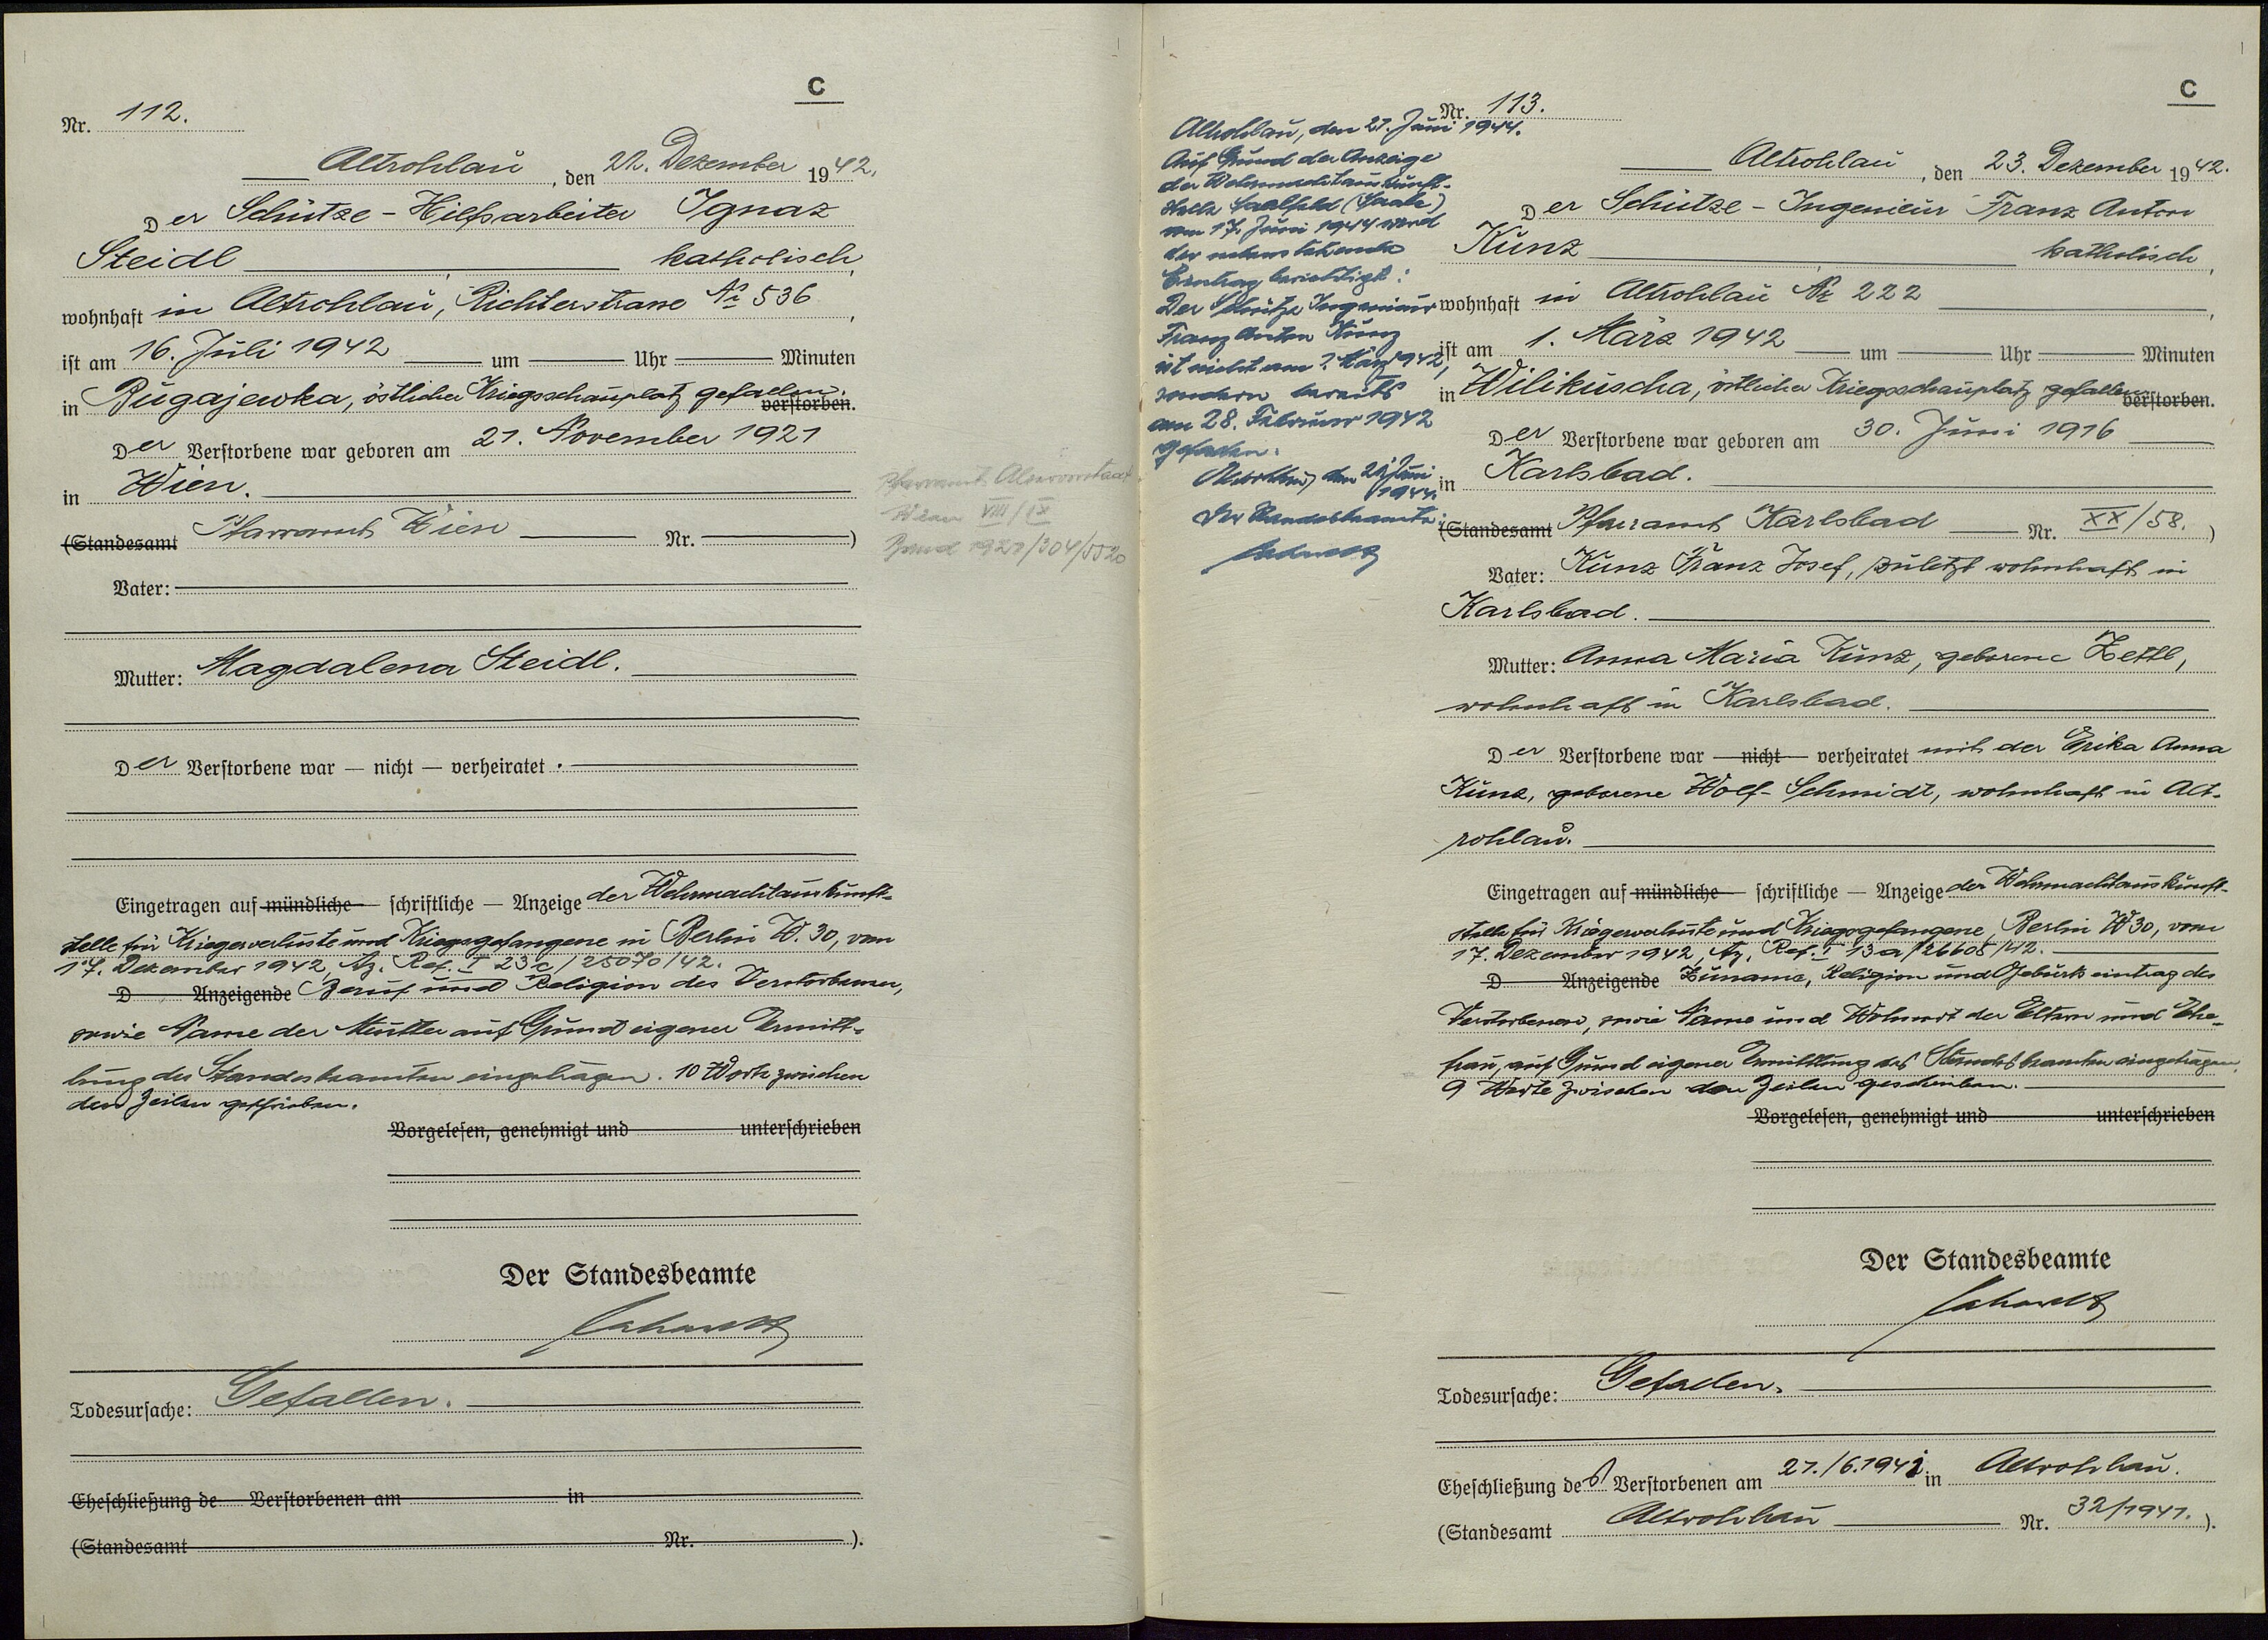 C
Nr. 112.
Altrohlau, den 22. Dezember 1942.
Der Schütze - Hilfsarbeiter Ignaz
Steidl katholisch,
wohnhaft in Altrohlau, Richterstrasse No 536,
ist am 16. Juli 1942 um Uhr Minuten
in Bugajewka, östlicher Kriegsschauplatz gefallen.
verstorben.
Der Verstorbene war geboren am 21. November 1921
in Wien.
(Standesamt Pfarramt Wien Nr. )
Vater:
Mutter: Magdalena Steidl.
Der Verstorbene war — nicht — verheiratet.
Eingetragen auf mündliche — schriftliche — Anzeige der Wehrmachtauskunft-
stelle für Kriegerverluste und Kriegsgefangene in Berlin W. 30, vom
17. Dezember 1942, Az. Ref. I 23c/25070/42.
D Anzeigende Beruf und Religion des Verstorbenen,
sowie Name der Mutter auf Grund eigener Ermitt-
lung des Standesbeamten eingetragen. 10 Worte zwischen
den Zeilen geschrieben.
Vorgelesen, genehmigt und unterschrieben
Der Standesbeamte
Todesursache: Gefallen.
Eheschließung de Verstorbenen am in
(Standesamt Nr. ).
Pfarramt Alservorstadt
Wien VIII/IX
Band 1921/304/5520
C
Nr. 113.
Altrohlau, den 23. Dezember 1942.
Der Schütze - Ingenieur Franz Anton
Kunz katholisch,
wohnhaft in Altrohlau No 222,
ist am 1. März 1942 um Uhr Minuten
in Wilikuscha, östlicher Kriegsschauplatz gefallen.
verstorben.
Der Verstorbene war geboren am 30. Juni 1916
in Karlsbad.
(Standesamt Pfarramt Karlsbad Nr. XX/58. )
Vater: Kunz Franz Josef, zuletzt wohnhaft in
Karlsbad.
Mutter: Anna Maria Kunz, geborene Zettl,
wohnhaft in Karlsbad.
Der Verstorbene war — nicht — verheiratet mit der Erika Anna
Kunz, geborene Wolf-Schmidt, wohnhaft in Alt-
rohlau.
Eingetragen auf mündliche — schriftliche — Anzeige der Wehrmachtauskunft-
stelle für Kriegerverluste und Kriegsgefangene, Berlin W30, vom
17. Dezember 1942, Az. Ref. I 13a/26608/42.
D Anzeigende Zuname, Religion und Geburtseintrag des
Verstorbenen, sowie Name und Wohnort der Eltern und Ehe-
frau, auf Grund eigener Ermittlung des Standesbeamten eingetragen.
9 Worte zwischen den Zeilen geschrieben.
Vorgelesen, genehmigt und unterschrieben
Der Standesbeamte
Todesursache: Gefallen.
Eheschließung des Verstorbenen am 21./6.1941 in Altrohlau.
(Standesamt Altrohlau Nr. 32/1941. ).
Altrohlau, den 21. Juni 1944.
Auf Grund der Anzeige
der Wehrmachtauskunft-
stelle Saalfeld (Saale)
vom 17. Juni 1944 wird
der nebenstehende
Eintrag berichtigt:
Der Schütze Ingenieur
Franz Anton Kunz
ist nicht am 1. März 1942,
sondern bereits
am 28. Februar 1942
gefallen.
Altrohlau, den 21. Juni
1944.
Der Standesbeamte: